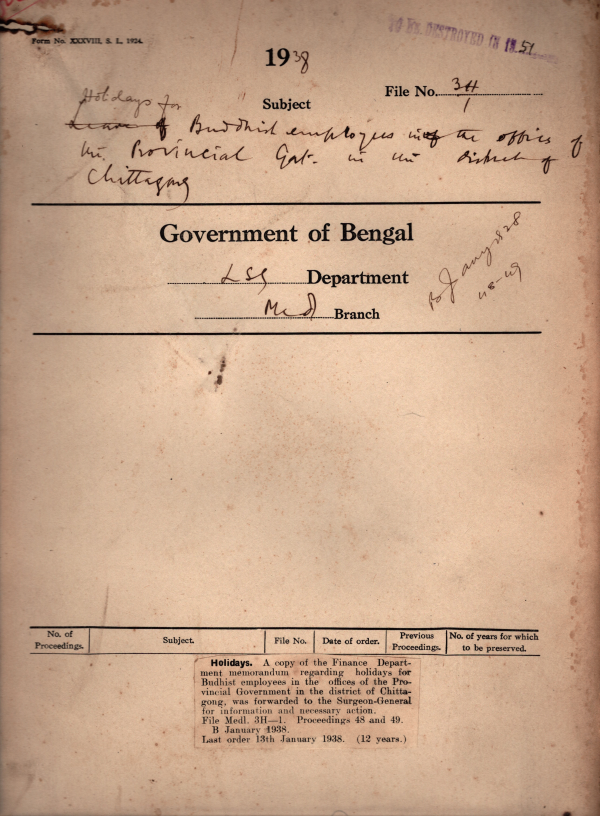 Form No. XXXVIII, S. L., 1924.
TO BE DESTROYED IN 19.51
1938
File No. 3H/1
Subject
Holidays for
Buddhist employees in the offices of
the Provincial Govt. in the district of
Chittagong
Government of Bengal
LSG Department
Medl Branch
48-49
No. of Proceedings.
Subject.
File No.
Date of order.
Previous Proceedings.
No. of years for which to be preserved.
Holidays. A copy of the Finance Depart-
ment memorandum regarding holidays for
Budhist employees in the offices of the Pro-
vincial Government in the district of Chitta-
gong, was forwarded to the Surgeon-General
for information and necessary action.
File Medl. 3H—1. Proceedings 48 and 49.
B January 1938.
Last order 13th January 1938. (12 years.)